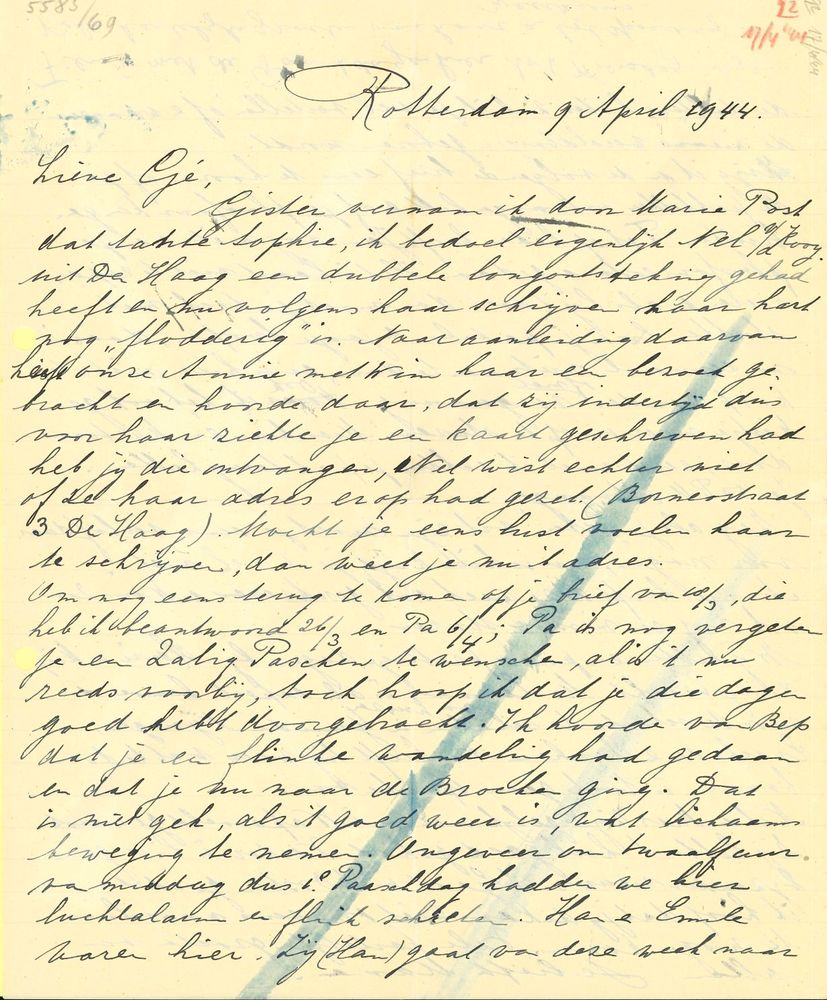 5583/69
22
17/4 '44
Rotterdam 9 April 1944.
Lieve Gé,
Gister vernam ik door Marie Post
dat tante Sophie, ik bedoel eigenlijk Nel v/d Kooy.
uit Den Haag een dubbele longontsteking gehad
heeft en nu volgens haar schrijven haar hart
nog „flodderig" is. Naar aanleiding daarvan
heeft onze Annie met Wim haar een bezoek ge
bracht en hoorde daar, dat zij indertijd dus
voor haar ziekte je een kaart geschreven had
heb jij die ontvangen, Nel wist echter niet
of ze haar adres erop had gezet. (Borneostraat
3 Den Haag). Mocht je eens lust voelen haar
te schrijven, dan weet je nu 't adres.
Om nog eens terug te komen op je brief van 18/3, die
heb ik beantwoord 26/3 en Pa 6/4; Pa is nog vergeten
je een Zalig Paschen te wenschen, al is 't nu
reeds voorbij, toch hoop ik dat je die dagen
goed hebt doorgebracht. Ik hoorde van Bep
dat je een flinke wandeling had gedaan
en dat je nu naar de Brocken ging. Dat
is niet gek, als 't goed weer is, wat lichaams
beweging te nemen. Ongeveer om twaalf uur
van middag dus 1e Paaschdag hadden we hier
luchtalarm en flink schieten. Han en Emile
waren hier. Zij (Han) gaat van deze week naar